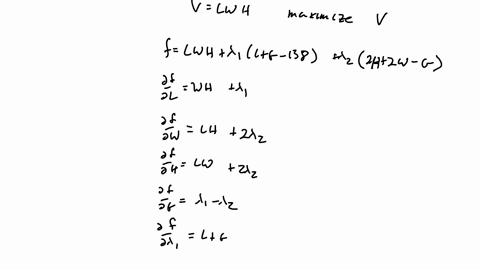 V = LWH maximize V
f = LWH + λ₁ (L+G-138) + λ₂ (2H+2W-G)
∂f/∂L = WH + λ₁
∂f/∂W = LH + 2λ₂
∂f/∂H = LW + 2λ₂
∂f/∂G = λ₁ - λ₂
∂f/∂λ₁ = L+G